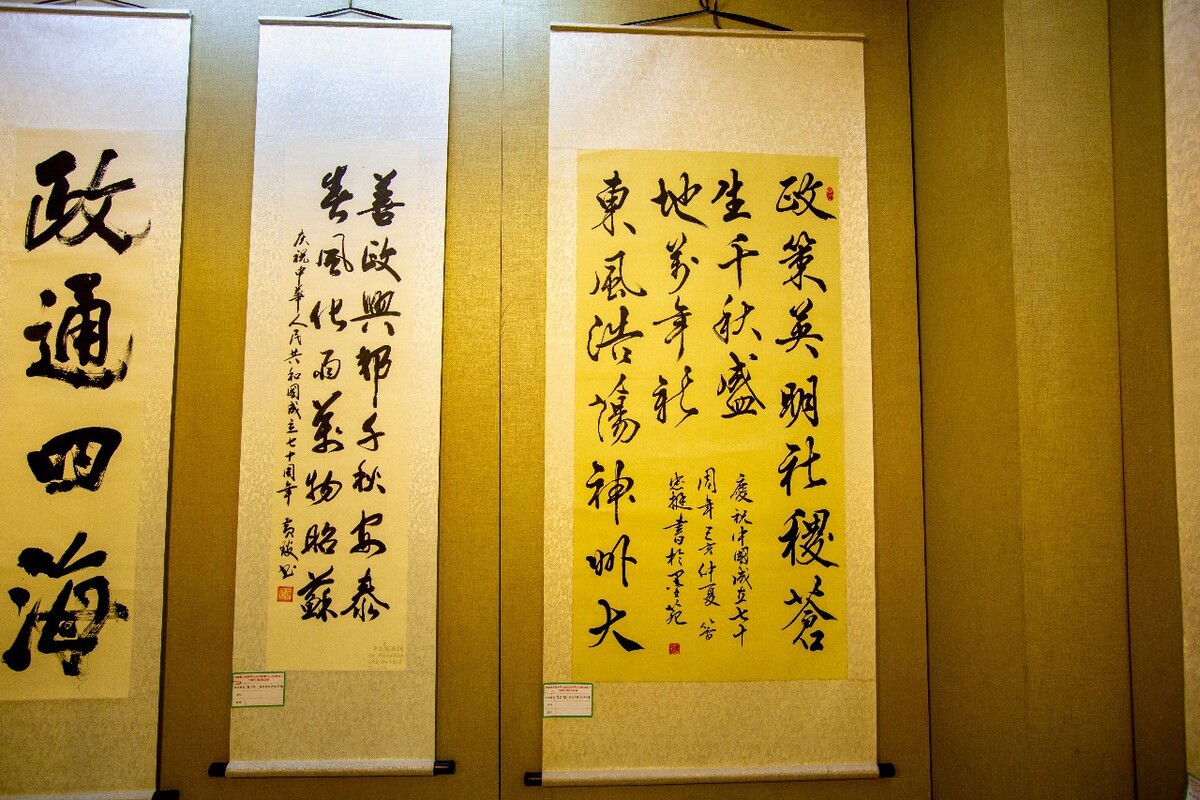 政策英明社稷蒼
生千秋盛
東風浩蕩神州大
地萬年新
慶祝中國成立七十
周年己亥仲夏
書於墨苑
善政興邦千秋安泰
春風化雨萬物昭蘇
庆祝中華人民共和國成立七十周年
政通四海